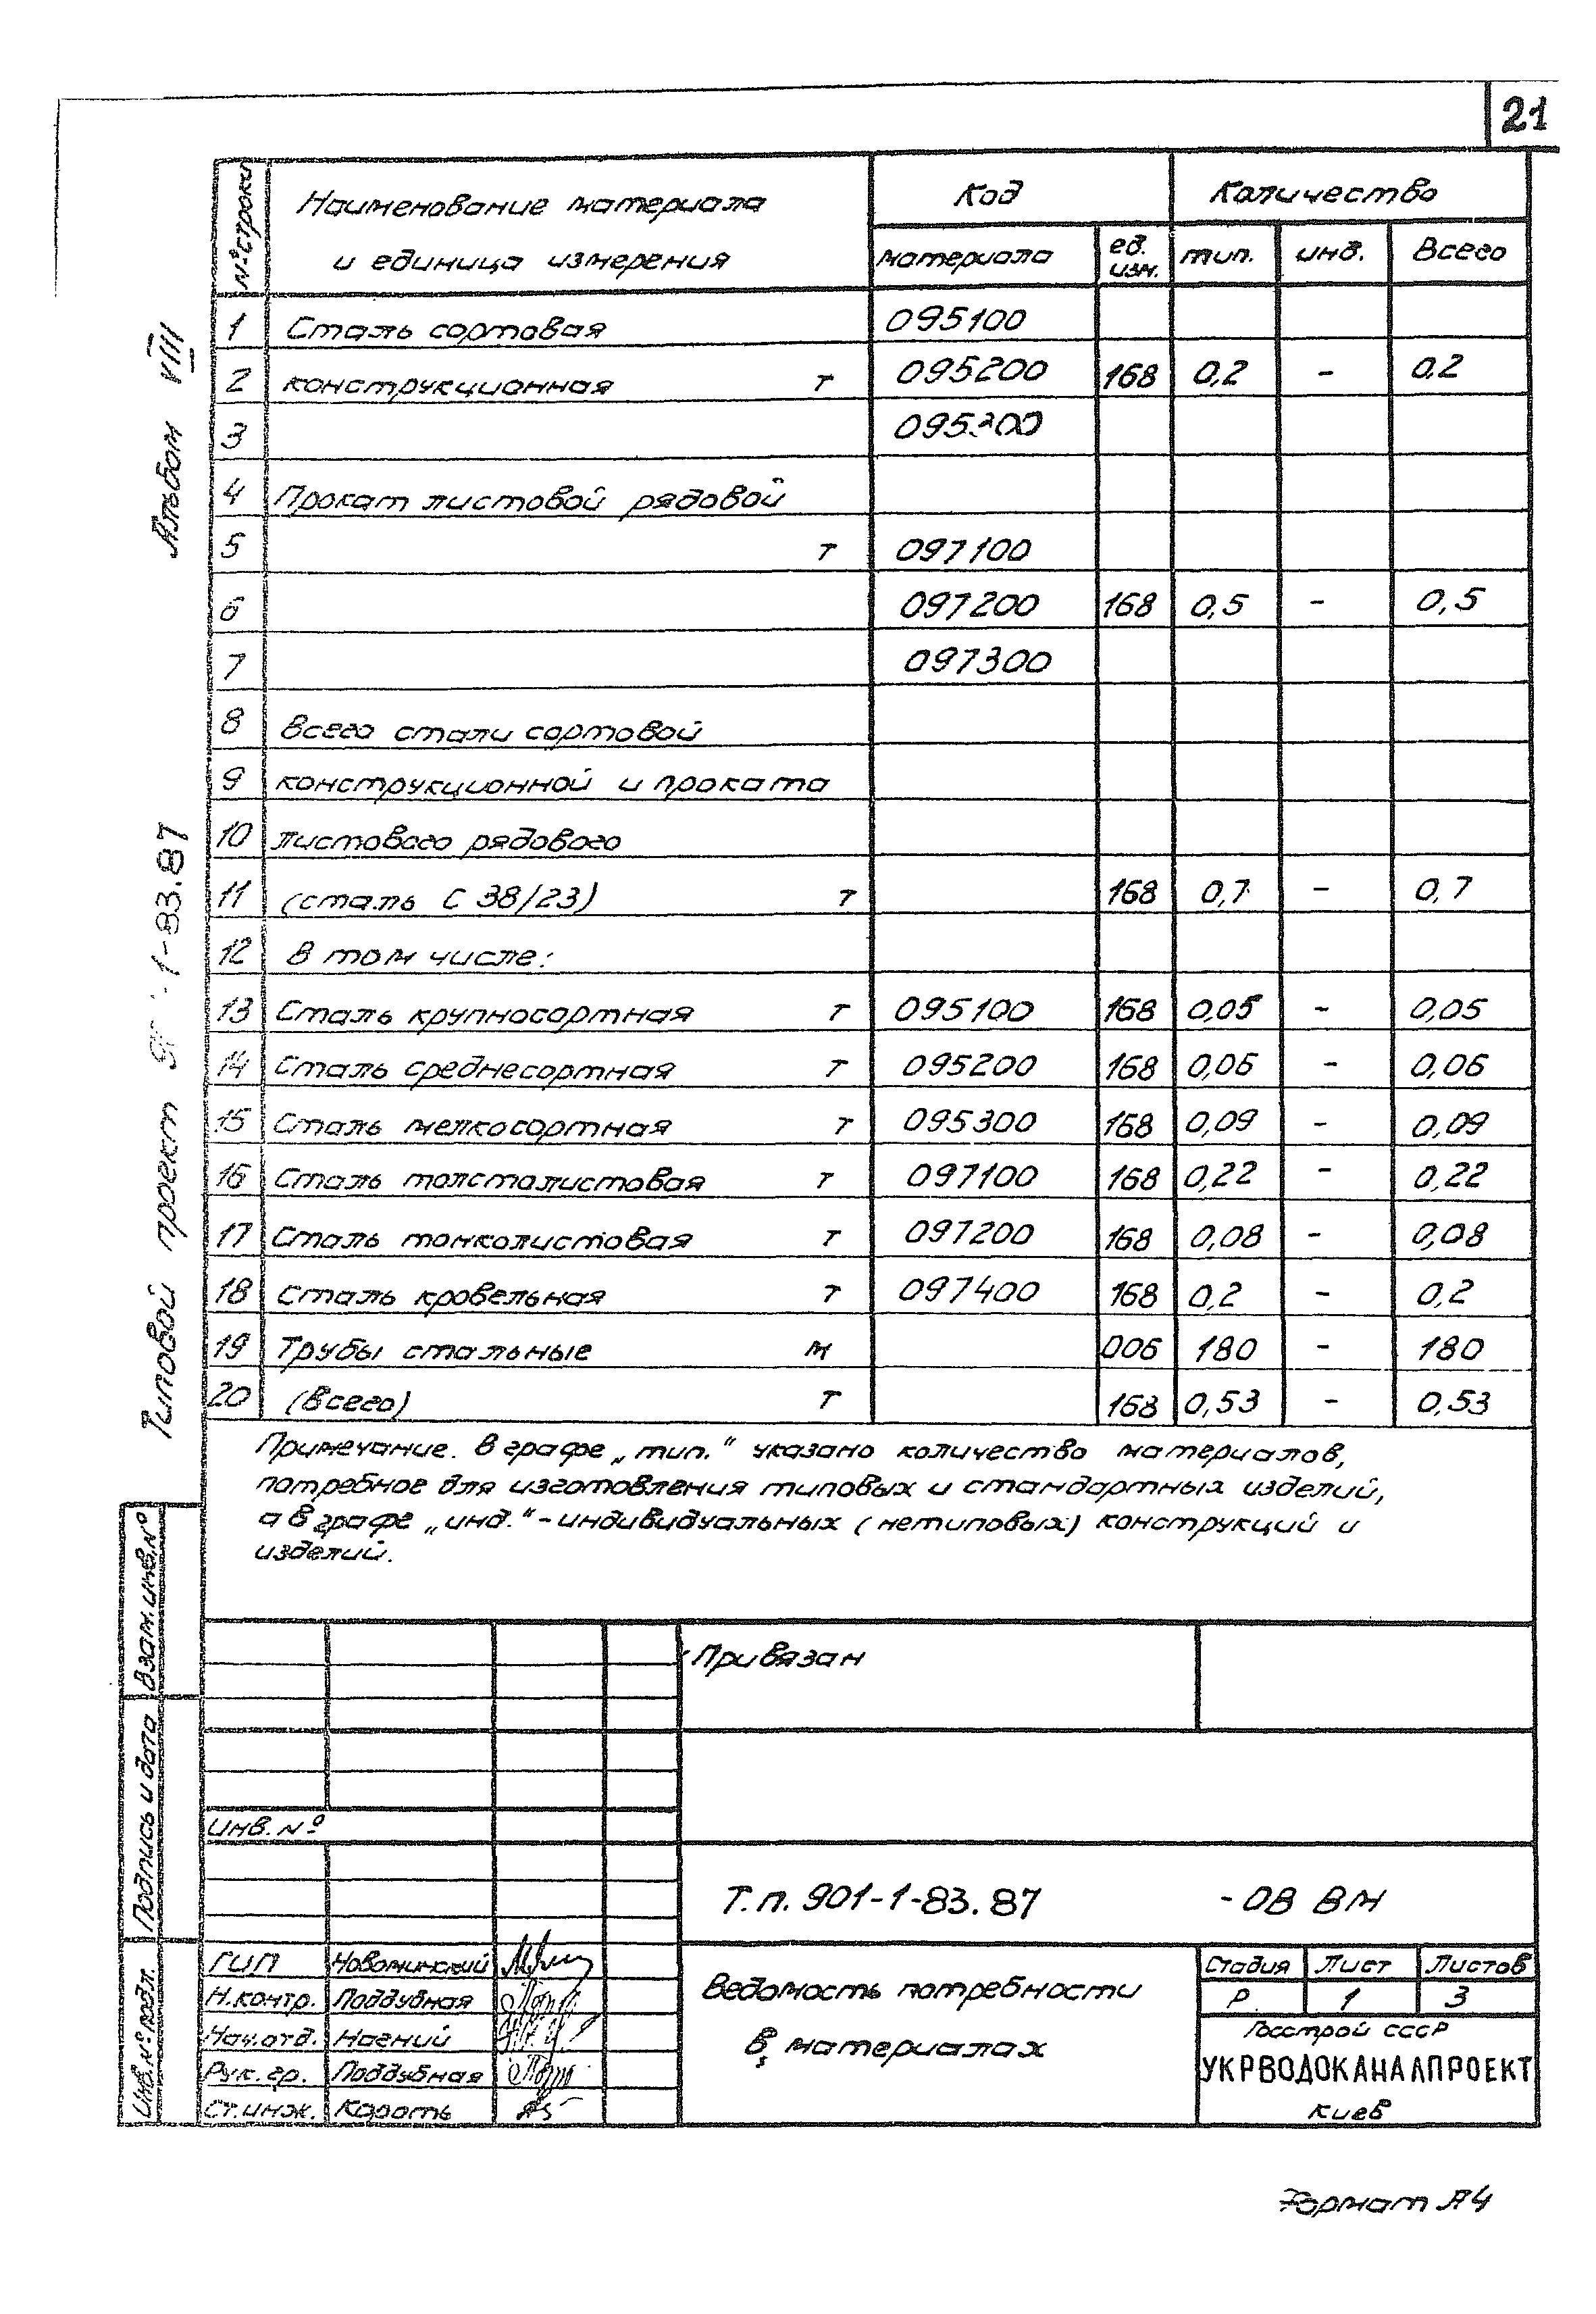 21
№ строки
Наименование материала
и единица измерения
Код
Количество
материала
ед. изм.
тип.
инд.
Всего
1 Сталь сортовая 095100
2 конструкционная т 095200 168 0,2 - 0,2
3 095300
4 Прокат листовой рядовой
5 т 097100
6 097200 168 0,5 - 0,5
7 097300
8 Всего стали сортовой
9 конструкционной и проката
10 листового рядового
11 (сталь С 38/23) т 168 0,7 - 0,7
12 В том числе:
13 Сталь крупносортная т 095100 168 0,05 - 0,05
14 Сталь среднесортная т 095200 168 0,06 - 0,06
15 Сталь мелкосортная т 095300 168 0,09 - 0,09
16 Сталь толстолистовая т 097100 168 0,22 - 0,22
17 Сталь тонколистовая т 097200 168 0,08 - 0,08
18 Сталь кровельная т 097400 168 0,2 - 0,2
19 Трубы стальные м 006 180 - 180
20 (всего) т 168 0,53 - 0,53
Примечание. В графе „тип.“ указано количество материалов,
потребное для изготовления типовых и стандартных изделий,
а в графе „инд.“ - индивидуальных (нетиповых) конструкций и
изделий.
Альбом VIII
Типовой проект 1-83.87
Взам. инв. №
Подпись и дата
Инв. № подл.
Привязан
Инв. №
Т.п. 901-1-83.87 - ОВ ВМ
ГИП Новоминский
Н.контр. Поддубная
Нач.отд. Нагний
Рук. гр. Поддубная
Ст.инж. Короть
Ведомость потребности
в материалах
Стадия Лист Листов
Р 1 3
Госстрой СССР
УКРВОДОКАНАЛПРОЕКТ
Киев
Формат А4